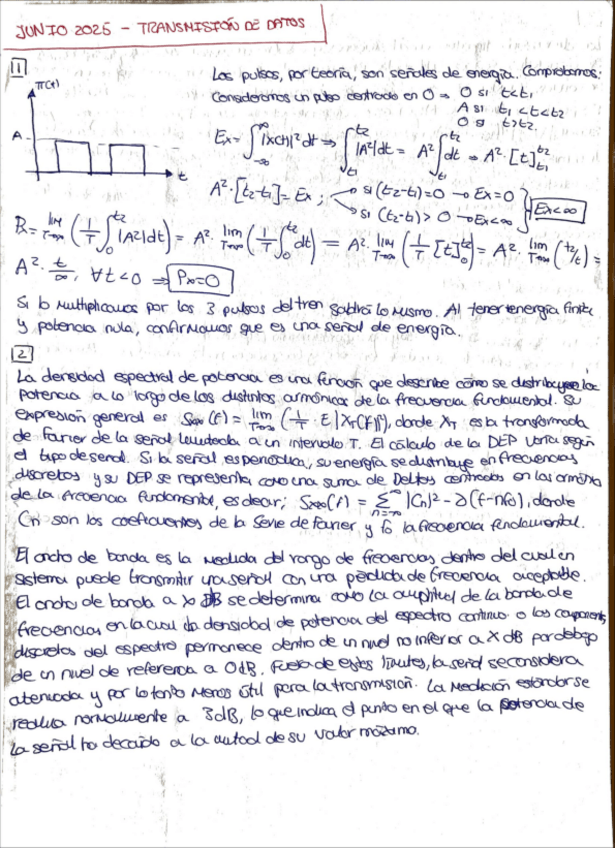 JUNIO 2025 - TRANSMISIÓN DE DATOS
1
π(t)
A
t
Los pulsos, por teoría, son señales de energía. Comprobamos:
Consideramos un pulso centrado en 0 → 0 si t<t₁
A si t₁<t<t₂
0 si t>t₂
Ex = ∫_{-∞}^{∞} |x(t)|² dt ⇒ ∫_{t₁}^{t₂} |A²| dt = A² ∫_{t₁}^{t₂} dt ⇒ A² · [t]_{t₁}^{t₂}
A² · [t₂-t₁] = Ex ; → si (t₂-t₁)=0 → Ex=0
→ si (t₂-t₁)>0 → Ex<∞ } Ex<∞
Px = lim_{T→∞} (1/T ∫_0^{t₂} |A²| dt) = A² · lim_{T→∞} (1/T ∫_0^{t₂} dt) = A² · lim_{T→∞} (1/T [t]_0^{t₂}) = A² · lim_{T→∞} (t₂/t) =
A² · t/∞, ∀t<0 ⇒ Px=0
Si lo multiplicamos por los 3 pulsos del tren saldrá lo mismo. Al tener energía finita
y potencia nula, confirmamos que es una señal de energía.
2
La densidad espectral de potencia es una función que describe cómo se distribuye la
potencia a lo largo de los distintos armónicos de la frecuencia fundamental. Su
expresión general es Sxx(f) = lim_{T→∞} (1/T · E|X_T(f)|²), donde X_T es la transformada
de Fourier de la señal limitada a un intervalo T. El cálculo de la DEP varía según
el tipo de señal. Si la señal es periódica, su energía se distribuye en frecuencias
discretas y su DEP se representa como una suma de Deltas centradas en los armónicos
de la frecuencia fundamental, es decir; Sxx(f) = Σ_{n=-∞}^{∞} |Cn|² - ∂(f-nf₀), donde
Cn son los coeficientes de la Serie de Fourier y f₀ la frecuencia fundamental.
El ancho de banda es la medida del rango de frecuencias dentro del cual un
sistema puede transmitir una señal con una pérdida de frecuencia aceptable.
El ancho de banda a X dB se determina como la amplitud de la banda de
frecuencias en la cual la densidad de potencia del espectro continuo o los componentes
discretos del espectro permanece dentro de un nivel no inferior a X dB por debajo
de un nivel de referencia a 0dB. Fuera de estos límites, la señal se considera
atenuada y por lo tanto menos útil para la transmisión. La medición estándar se
realiza normalmente a 3dB, lo que indica el punto en el que la potencia de
la señal ha decaído a la mitad de su valor máximo.